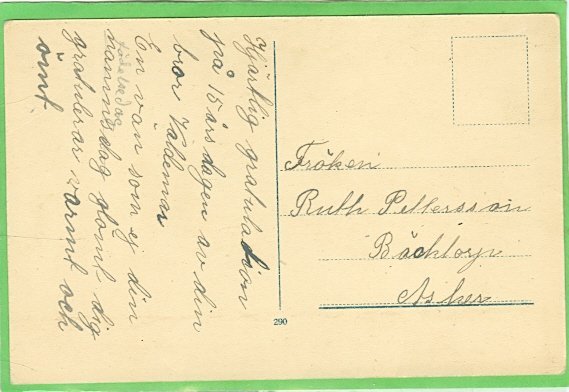 Hjärtlig gratulation
på 15 års dagen av din
bror Valdemar
En vän som ej din
födelsedag
namnsdag glömt dig
gratulerar varmt och
ömt.
Fröken
Ruth Pettersson
Bäcktorp
Asker
290